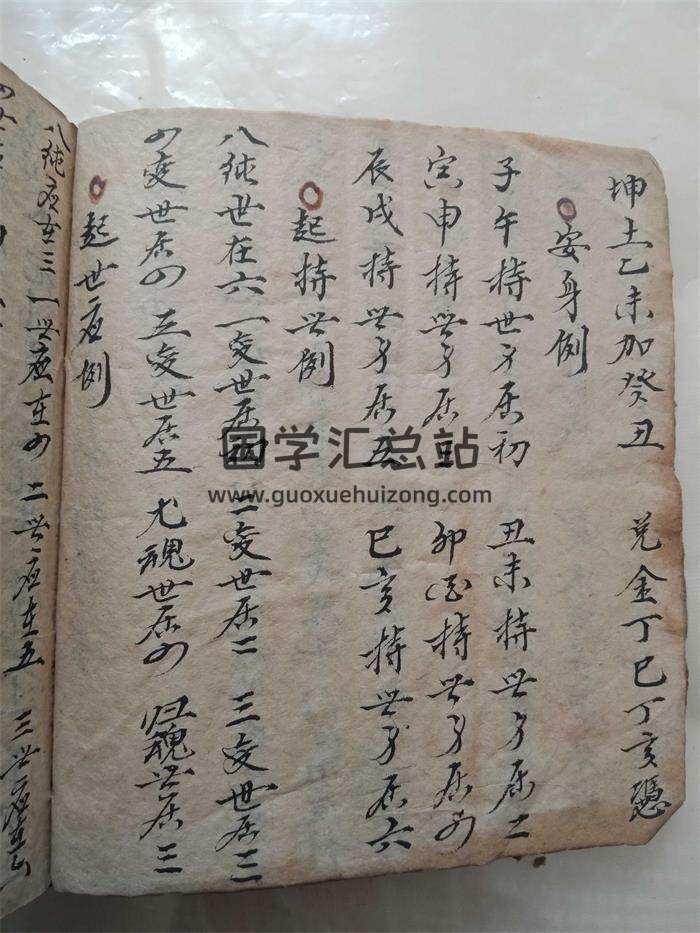 坤土乙未加癸丑 兑金丁巳丁亥憑
安身例
子午持世身居初 丑未持世身居二
寅申持世身居三 卯酉持世身居四
辰戌持世身居五 巳亥持世身居六
起持世例
八純世在六 一变世居初 二变世居二 三变世居三
四变世居四 五变世居五 尤魂世居四 归魂世居三
起世应例
八純应在三 一世应在四 二世应在五 三世应在
国学汇总站
www.guoxuehuizong.com